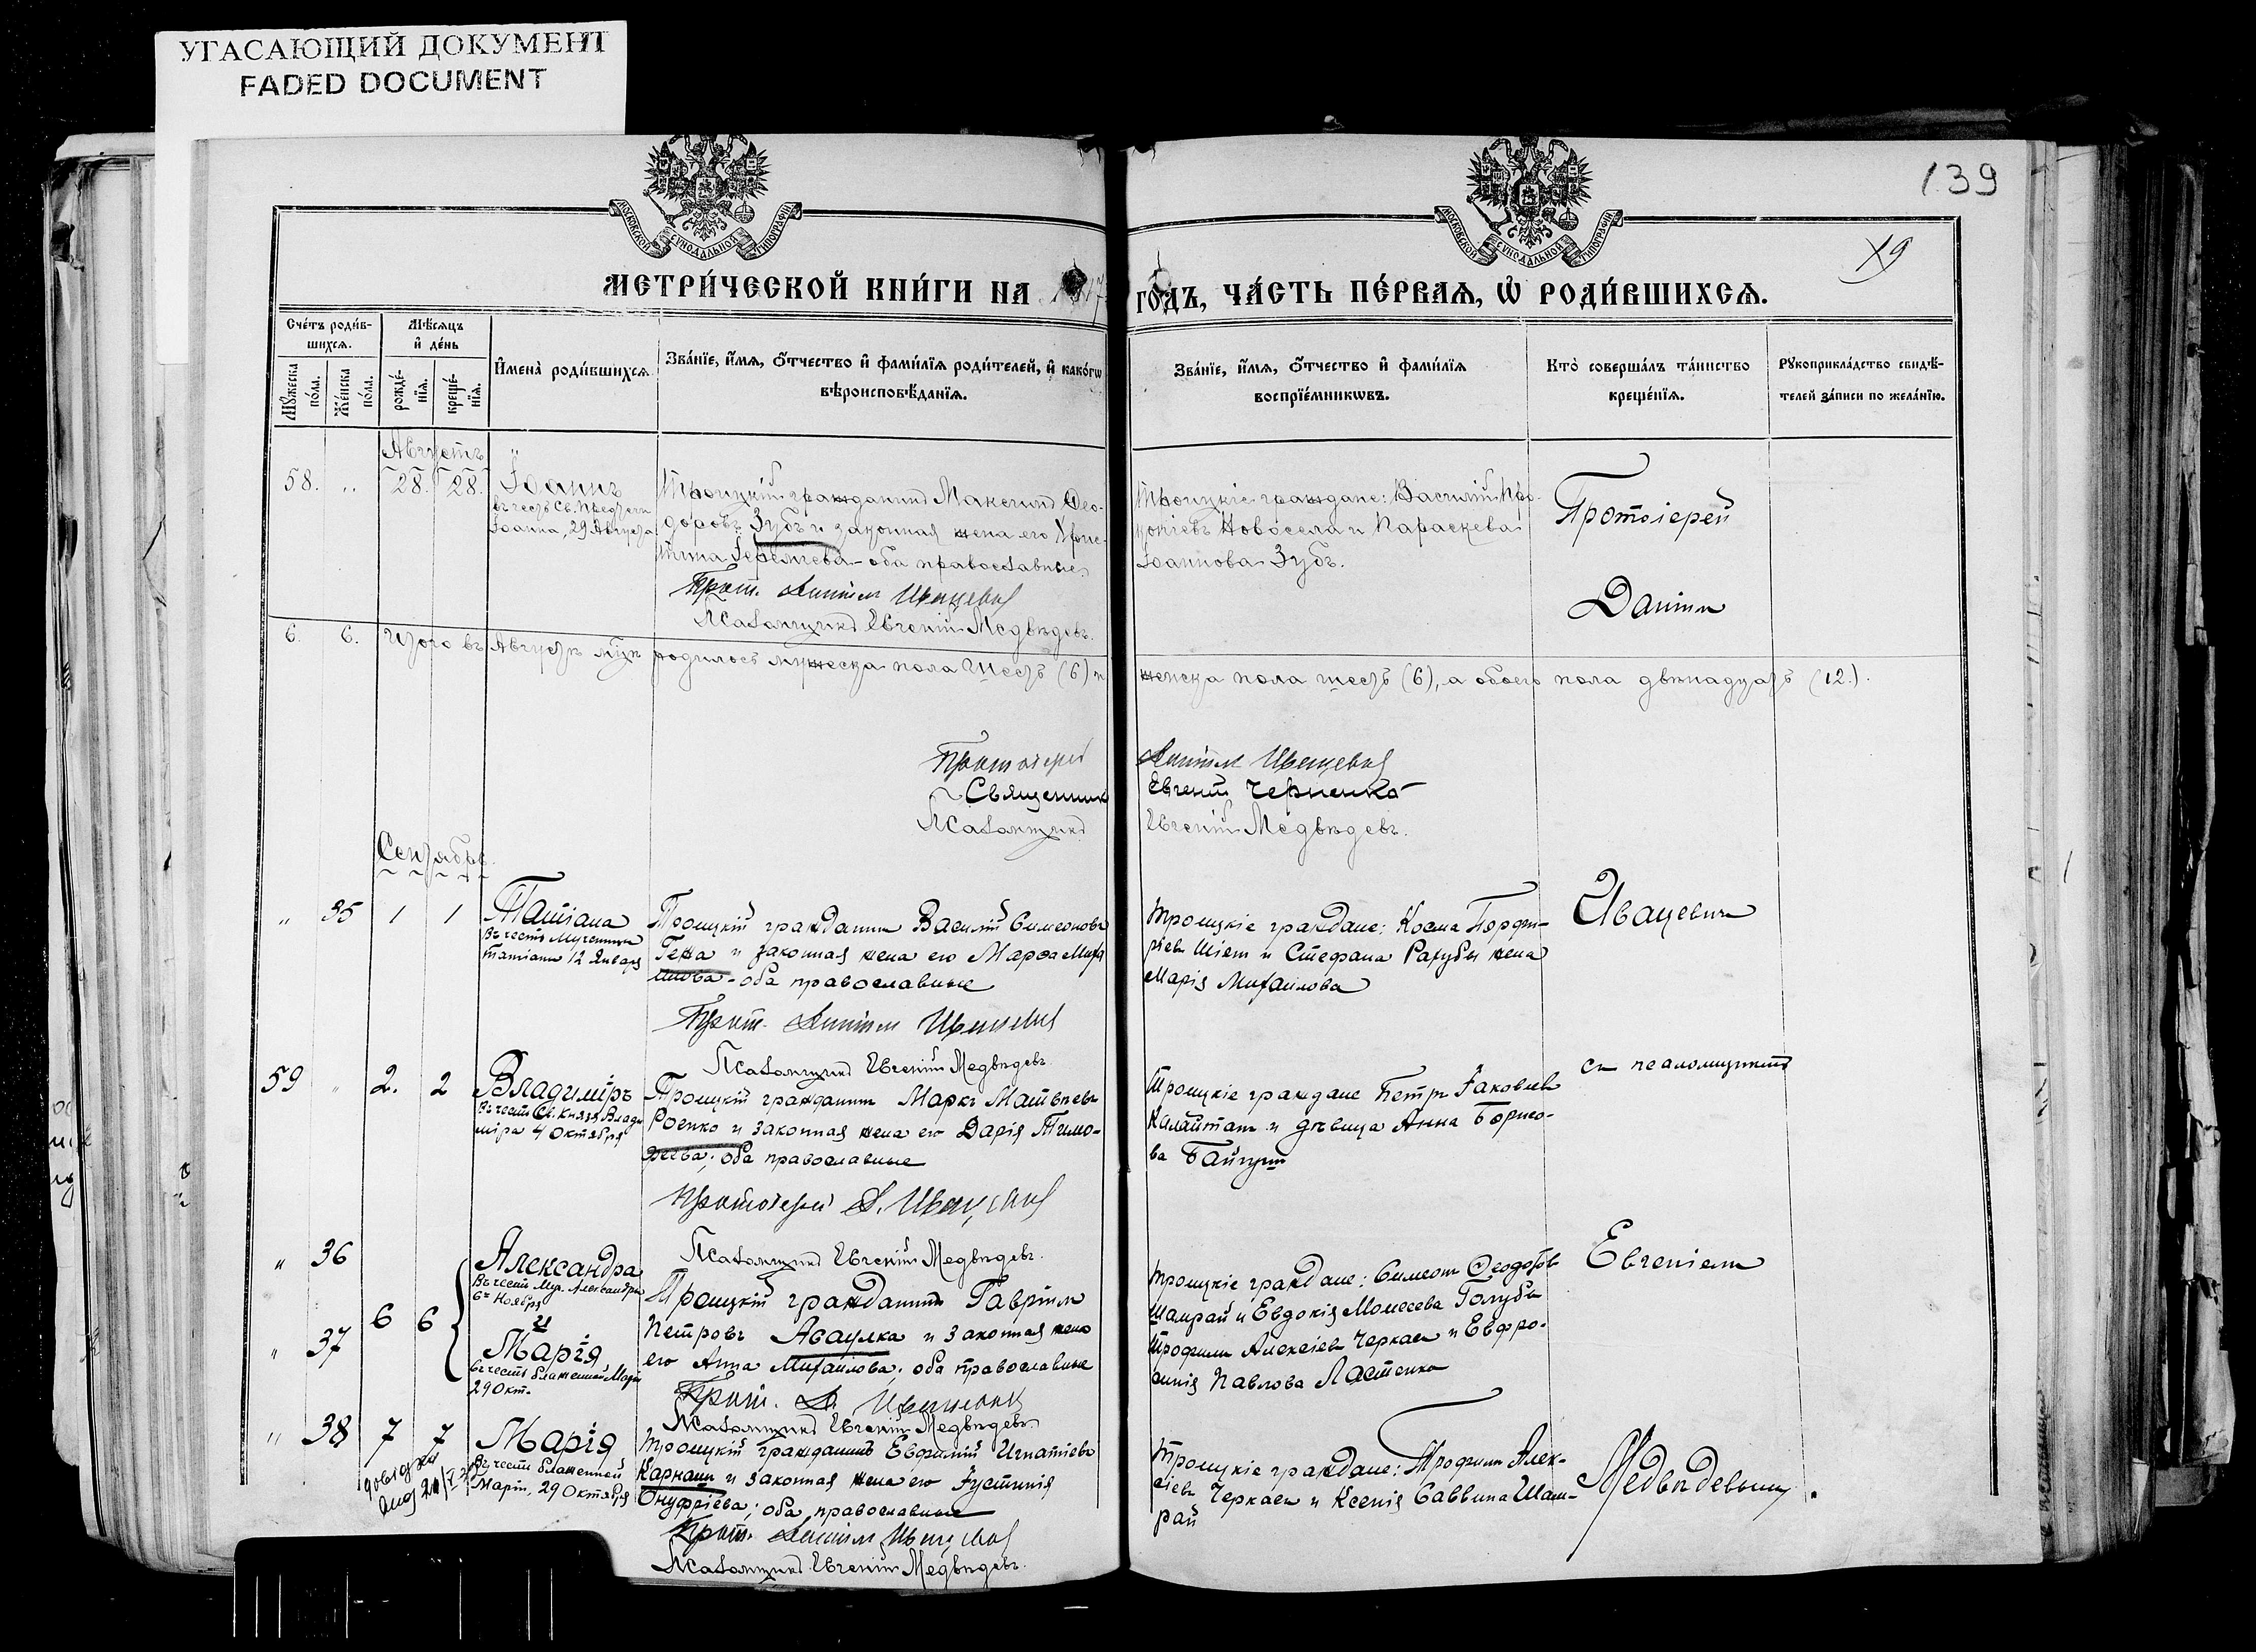 УГАСАЮЩИЙ ДОКУМЕНТ
FADED DOCUMENT
139
МОСКОВСКОЙ СѴНОДАЛЬНОЙ ТИПОГРАФІИ
МОСКОВСКОЙ СѴНОДАЛЬНОЙ ТИПОГРАФІИ
МЕТРИ́ЧЕСКОЙ КНИ́ГИ НА 1917 ГОДЪ, ЧА́СТЬ ПЕ́РВАѦ, Ѡ РОДИ́ВШИХСѦ.
Сче́тъ роди́в-
шихсѧ.
Мꙋ́жеска по́ла.
Же́нска по́ла.
Мѣ́сѧцъ и҆ де́нь
рожде́-нїѧ.
креще́-нїѧ.
И҆мена̀ роди́вшихсѧ
Зва́нїе, и҆́мѧ, ѻ҆́тчество и҆ фами́лїѧ роди́телей, и҆ како́гѡ
вѣроисповѣ́данїѧ.
Зва́нїе, и҆́мѧ, ѻ҆́тчество и҆ фами́лїѧ
воспрїе́мникѡвъ.
Кто̀ соверша́лъ та́инство
креще́нїѧ.
Рꙋкоприкла́дство свидѣ́-
телей за́писи по жела́нїю.
Августъ
58. „ 28. 28. Іоаннъ
въ честь Св. Предтечи
Іоанна, 29 Августа
Троицкій гражданинъ Максимъ Ѳео-
доровъ Зубъ и законная жена его Хрис-
тина Іереміева - оба православные.
Прот. Даніилъ Ивацевичъ
Псаломщикъ Евгеній Медвѣдевъ.
Троицкіе граждане: Василій Про-
копіевъ Новосела и Параскева
Іоаннова Зубъ.
Протоіерей
Даніилъ
6. 6. Итого въ Августѣ мѣс. родилось мужеска пола шесть (6) и женска пола шесть (6), а обоего пола двѣнадцать (12).
Протоіерей Даніилъ Ивацевичъ
Священникъ Евгеній Черненко
Псаломщикъ Евгеній Медвѣдевъ.
Сентябрь
„ 35 1 1 Татіана
Въ честь Мученицы
Татіаны 12 Января
Троицкій гражданинъ Василій Симеоновъ
Гежа и законная жена его Марѳа Миха
илова - оба православные
Прот. Даніилъ Ивацевичъ
Псаломщикъ Евгеній Медвѣдевъ
Троицкіе граждане: Косма Порфи-
ріевъ и Стефана жена
Марія Михаилова
Ивацевичъ
59 „ 2. 2 Владиміръ
Въ честь Св. Князя Влади
міра 4 Октября
Троицкій гражданинъ Маркъ Матвѣевъ
Роенко и законная жена его Дарія Тимо-
ѳеева; оба православные
Протоіерей Д. Ивацевичъ
Псаломщикъ Евгеній Медвѣдевъ.
Троицкіе граждане Петръ Іаковлевъ
Калайтанъ и дѣвица Анна Борисо-
ва
съ псаломщикомъ
„ 36
„ 37
6 6
Александра
Въ честь Муч. Александры
6го Ноября
и
Марія
въ честь блаженной Маріи
29 Окт.
Троицкій гражданинъ Гавріилъ
Петровъ Асаулка и законная жена
его Анна Михаилова; оба православные
Прот. Д. Ивацевичъ
Псаломщикъ Евгеній Медвѣдевъ.
Троицкіе граждане: Симеонъ Ѳеодоровъ
Шамрай и Евдокія Моисеева Голубъ
Трофимъ Алексіевъ Черкасъ и Евфро-
синія Павлова Ластенко
Евгеніемъ
„ 38 7 7 Марія
Въ честь блаженной
Маріи, 29 Октября
Троицкій гражданинъ Евфимій Игнатіевъ
Карнаш и законная жена его Іустинія
Онуфріева; оба православные
Прот. Даніилъ Ивацевичъ
Псаломщикъ Евгеній Медвѣдевъ.
Троицкіе граждане: Трофимъ Алек-
сіевъ Черкасъ и Ксенія Саввина Шам-
рай
Медвѣдевымъ.